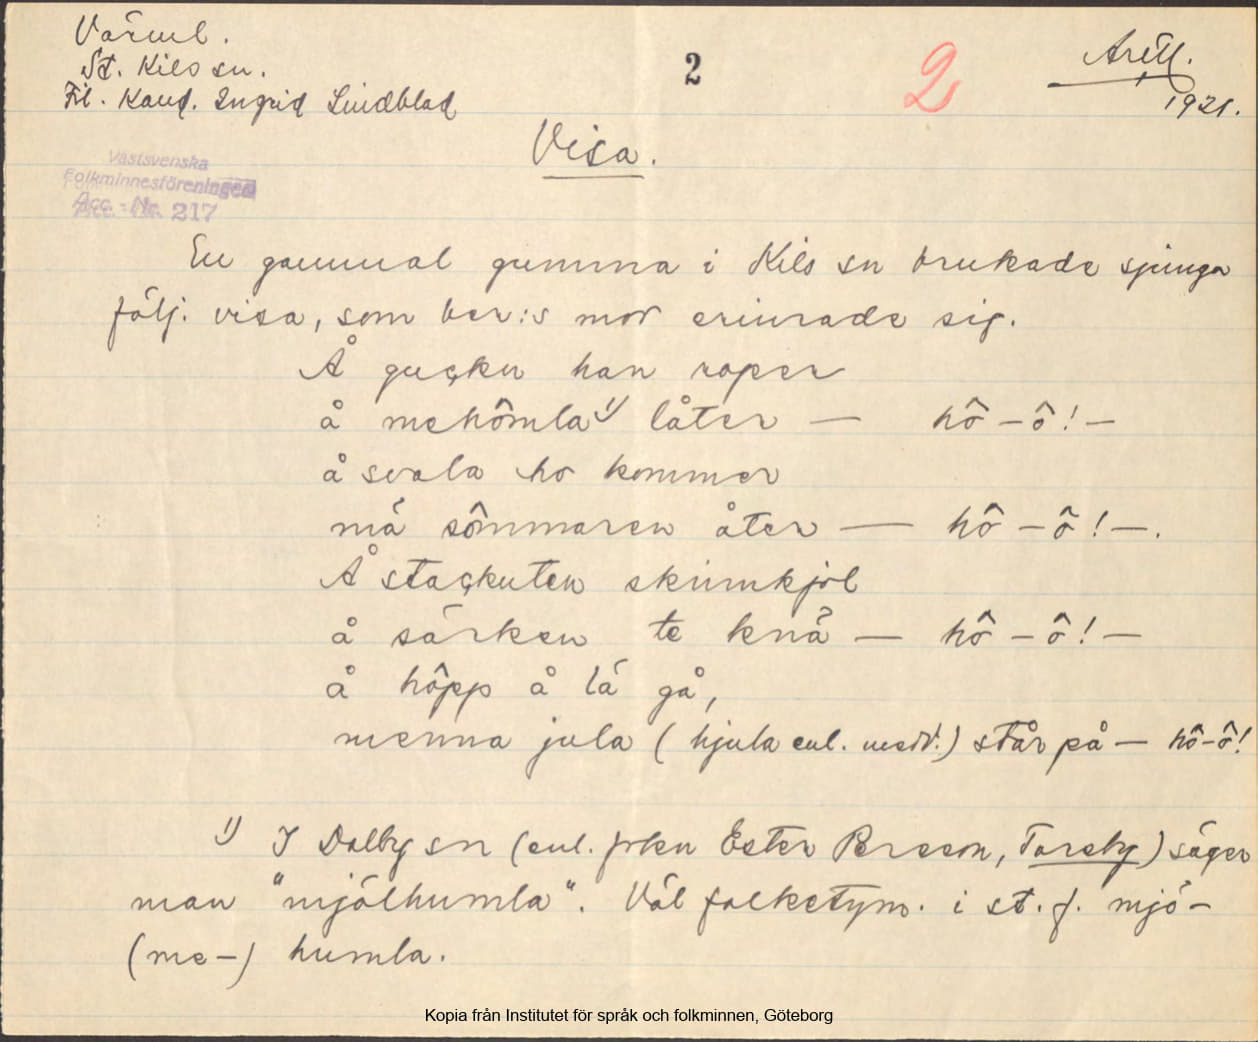 Värml.
St. Kils sn.
Fil. Kand. Ingrid Lindblad
2
2
1921.
Visa.
Västsvenska
Folkminnesföreningen
Acc. - Nr. 217
En gammal gumma i Kils sn brukade sjunga
följ. visa, som ber:s mor erinrade sig.
Å guçku han roper
å mehômla 1) låter — hô – ô! –
å svala ho kommer
mä sômmaren åter — hô – ô! –.
Å staçkuten skinnkjol
å särken te knä — hô – ô! –
å hôpp å lä gå,
menna jula (hjula enl. medd.) står på — hô-ô!
1) I Dalby sn (enl. frkn Ester Persson, Torsby) säger
man "mjölhumla". Väl folketym. i st. f. mjö-
(me-) humla.
Kopia från Institutet för språk och folkminnen, Göteborg